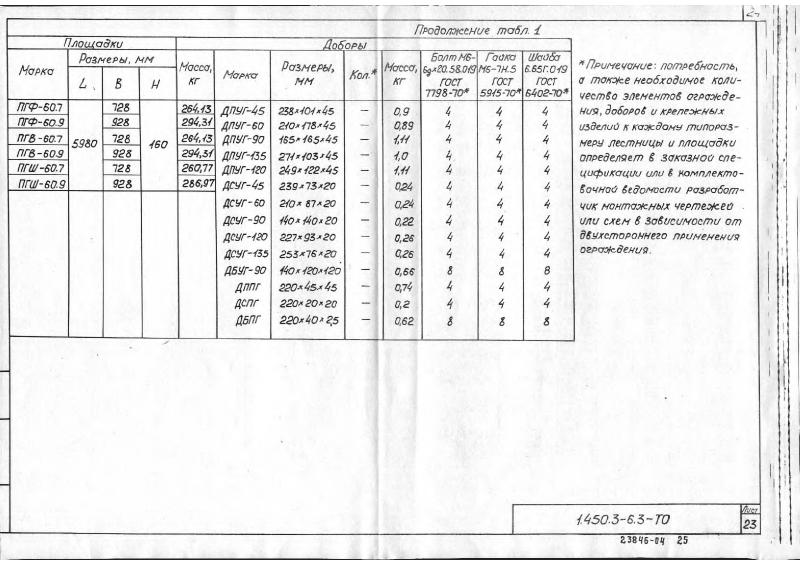 Продолжение табл. 1
Площадки Доборы
Марка Размеры, мм Масса, кг Марка Размеры, мм Кол.* Масса, кг Болт М6-6gх20.58.019 ГОСТ 7798-70* Гайка М6-7Н.5 ГОСТ 5915-70* Шайба 6.65Г.019 ГОСТ 6402-70*
L B H
ПГФ-60.7 5980 728 160 264,13 ДПУГ-45 238×101×45 — 0,9 4 4 4
ПГФ-60.9 928 294,31 ДПУГ-60 210×178×45 — 0,89 4 4 4
ПГВ-60.7 728 264,13 ДПУГ-90 165×165×45 — 1,11 4 4 4
ПГВ-60.9 928 294,31 ДПУГ-135 271×103×45 — 1,0 4 4 4
ПГШ-60.7 728 260,77 ДПУГ-120 249×122×45 — 1,11 4 4 4
ПГШ-60.9 928 286,97 ДСУГ-45 239×73×20 — 0,24 4 4 4
ДСУГ-60 210×87×20 — 0,24 4 4 4
ДСУГ-90 140×140×20 — 0,22 4 4 4
ДСУГ-120 227×93×20 — 0,26 4 4 4
ДСУГ-135 253×76×20 — 0,26 4 4 4
ДБУГ-90 140×120×120 — 0,66 8 8 8
ДППГ 220×45×45 — 0,74 4 4 4
ДСПГ 220×20×20 — 0,2 4 4 4
ДБПГ 220×40×2,5 — 0,62 8 8 8
*Примечание: потребность,
а также необходимое коли-
чество элементов огражде-
ния, доборов и крепежных
изделий к каждому типораз-
меру лестницы и площадки
определяет в заказной спе-
цификации или в комплекто-
вочной ведомости разработ-
чик монтажных чертежей
или схем в зависимости от
двухстороннего применения
ограждения.
1.450.3-6.3-ТО
Лист
23
23846-04 25